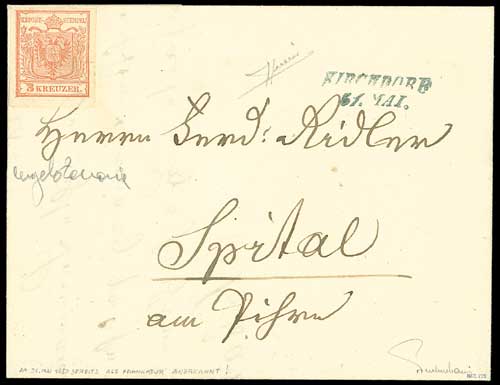 K·K·POST-STEMPEL
3 KREUZER.
KIRCHDORF
31. MAI.
Herrn Ferd: Ridler
Spital
am Pihrn
AM 31. MAI 1850 BEREITS ALS FRANKATUR ANERKANNT!